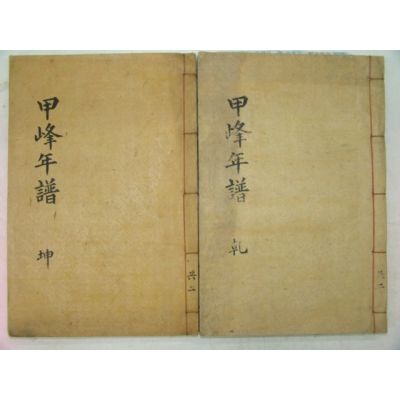 甲峰年譜
乾
共二
甲峰年譜
坤
共二